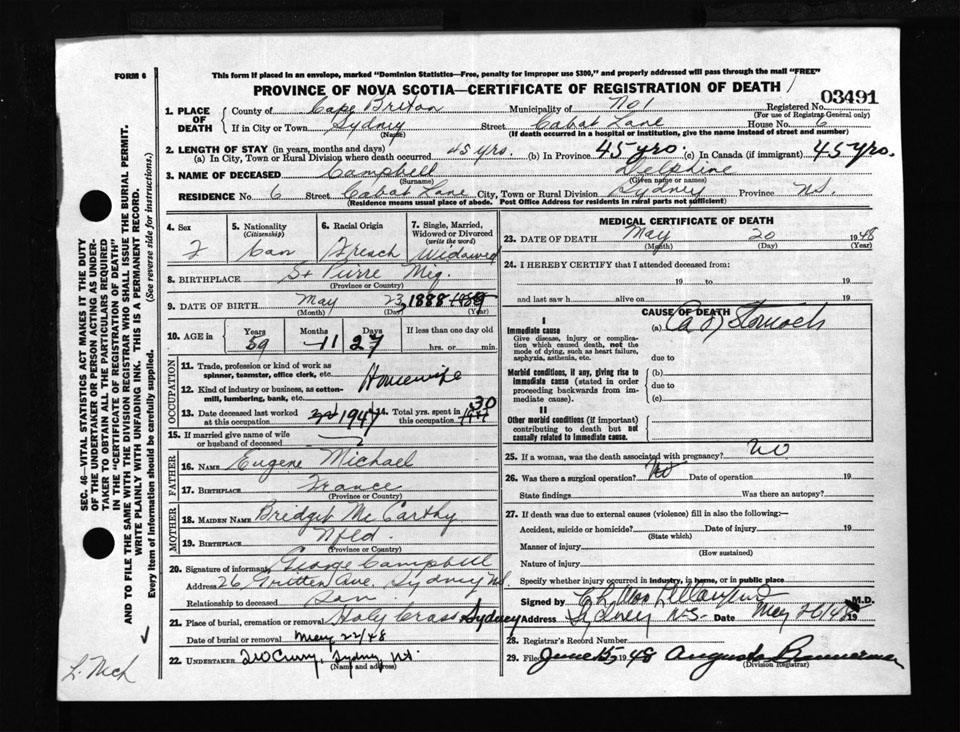 FORM 6
This form if placed in an envelope, marked "Dominion Statistics—Free, penalty for improper use $300," and properly addressed will pass through the mail "FREE"
PROVINCE OF NOVA SCOTIA—CERTIFICATE OF REGISTRATION OF DEATH
03491
1. PLACE OF DEATH
County of Cape Breton Municipality of No 1 Registered No.
(For use of Registrar General only)
If in City or Town Sydney Street Cabot Lane House No. 6
(Name) (If death occurred in a hospital or institution, give the name instead of street and number)
2. LENGTH OF STAY (in years, months and days)
(a) In City, Town or Rural Division where death occurred 45 yrs. (b) In Province 45 yrs. (c) In Canada (if immigrant) 45 yrs.
3. NAME OF DECEASED Campbell Delphine
(Surname) (Given name or names)
RESIDENCE No 6 Street Cabot Lane City, Town or Rural Division Sydney Province N.S.
(Residence means usual place of abode. Post Office Address for residents in rural parts not sufficient)
4. Sex F
5. Nationality (Citizenship) Can
6. Racial Origin French
7. Single, Married, Widowed or Divorced (write the word) Widowed
8. BIRTHPLACE St Pierre Miq.
(Province or Country)
9. DATE OF BIRTH May 23 1888
(Month) (Day) (Year)
10. AGE in Years 59 Months 11 Days 27 If less than one day old hrs. or min.
OCCUPATION
11. Trade, profession or kind of work as spinner, teamster, office clerk, etc. Housewife
12. Kind of industry or business, as cotton-mill, lumbering, bank, etc.
13. Date deceased last worked at this occupation 1947 Total yrs. spent in this occupation 30
15. If married give name of wife or husband of deceased
FATHER
16. NAME Eugene Michael
17. BIRTHPLACE France
(Province or Country)
MOTHER
18. MAIDEN NAME Bridget McCarthy
19. BIRTHPLACE Nfld.
(Province or Country)
20. Signature of informant George Campbell
Address 26 Ave. Sydney N.S.
Relationship to deceased Son
21. Place of burial, cremation or removal Holy Cross Sydney
Date of burial or removal May 22/48
22. UNDERTAKER Curry, Sydney N.S.
(Name and address)
MEDICAL CERTIFICATE OF DEATH
23. DATE OF DEATH May 20 1948
(Month) (Day) (Year)
24. I HEREBY CERTIFY that I attended deceased from:
19 to 19
and last saw h alive on 19
CAUSE OF DEATH
I
Immediate cause (a) Ca of Stomach
Give disease, injury or complication which caused death, not the mode of dying, such as heart failure, asphyxia, asthenia, etc.
due to
Morbid conditions, if any, giving rise to immediate cause (stated in order proceeding backwards from immediate cause).
(b)
due to
(c)
II
Other morbid conditions (if important) contributing to death but not causally related to immediate cause.
25. If a woman, was the death associated with pregnancy? No
26. Was there a surgical operation? No Date of operation 19
State findings Was there an autopsy?
27. If death was due to external causes (violence) fill in also the following:—
Accident, suicide or homicide? Date of injury 19
(State which)
Manner of injury
(How sustained)
Nature of injury
Specify whether injury occurred in industry, in home, or in public place
Signed by M.D.
Address Sydney N.S. Date May 26/48 19
28. Registrar's Record Number
29. Filed June 15, 1948
(Division Registrar)
SEC. 46—VITAL STATISTICS ACT MAKES IT THE DUTY
OF THE UNDERTAKER OR PERSON ACTING AS UNDER-
TAKER TO OBTAIN ALL THE PARTICULARS REQUIRED
IN THE "CERTIFICATE OF REGISTRATION OF DEATH"
AND TO FILE THE SAME WITH THE DIVISION REGISTRAR WHO SHALL ISSUE THE BURIAL PERMIT.
WRITE PLAINLY WITH UNFADING INK. THIS IS A PERMANENT RECORD.
Every item of information should be carefully supplied. (See reverse side for instructions.)